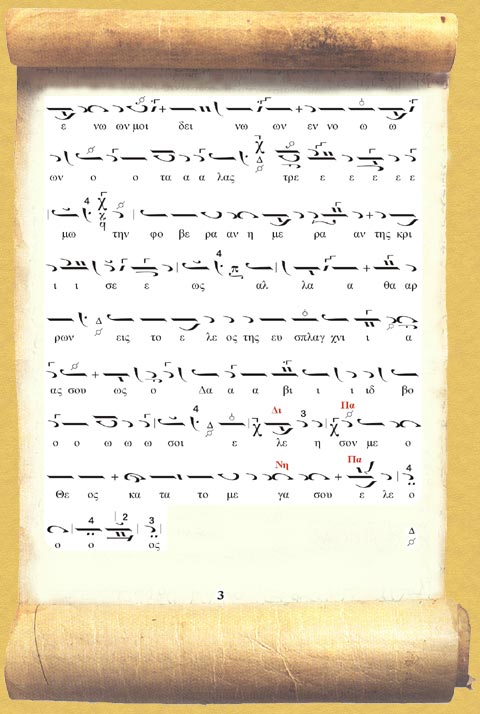 ε νω ων μοι δει νω ων εν νο ω ω
ων ο ο τα α α λας τρε ε ε ε ε ε
μω την φο βε ρα αν η με ρα αν της κρι
ι ι σε ε ως αλ λα α θα αρ
ρων εις το ε λε ος της ευ σπλαγ χνι ι α
ας σου ως ο Δα α α βι ι ι ιδ βο
ο ο ω ω ω σοι ε λε η σον με ο
Θε ος κα τα το με γα σου ε λε ο
ο ο ος
3